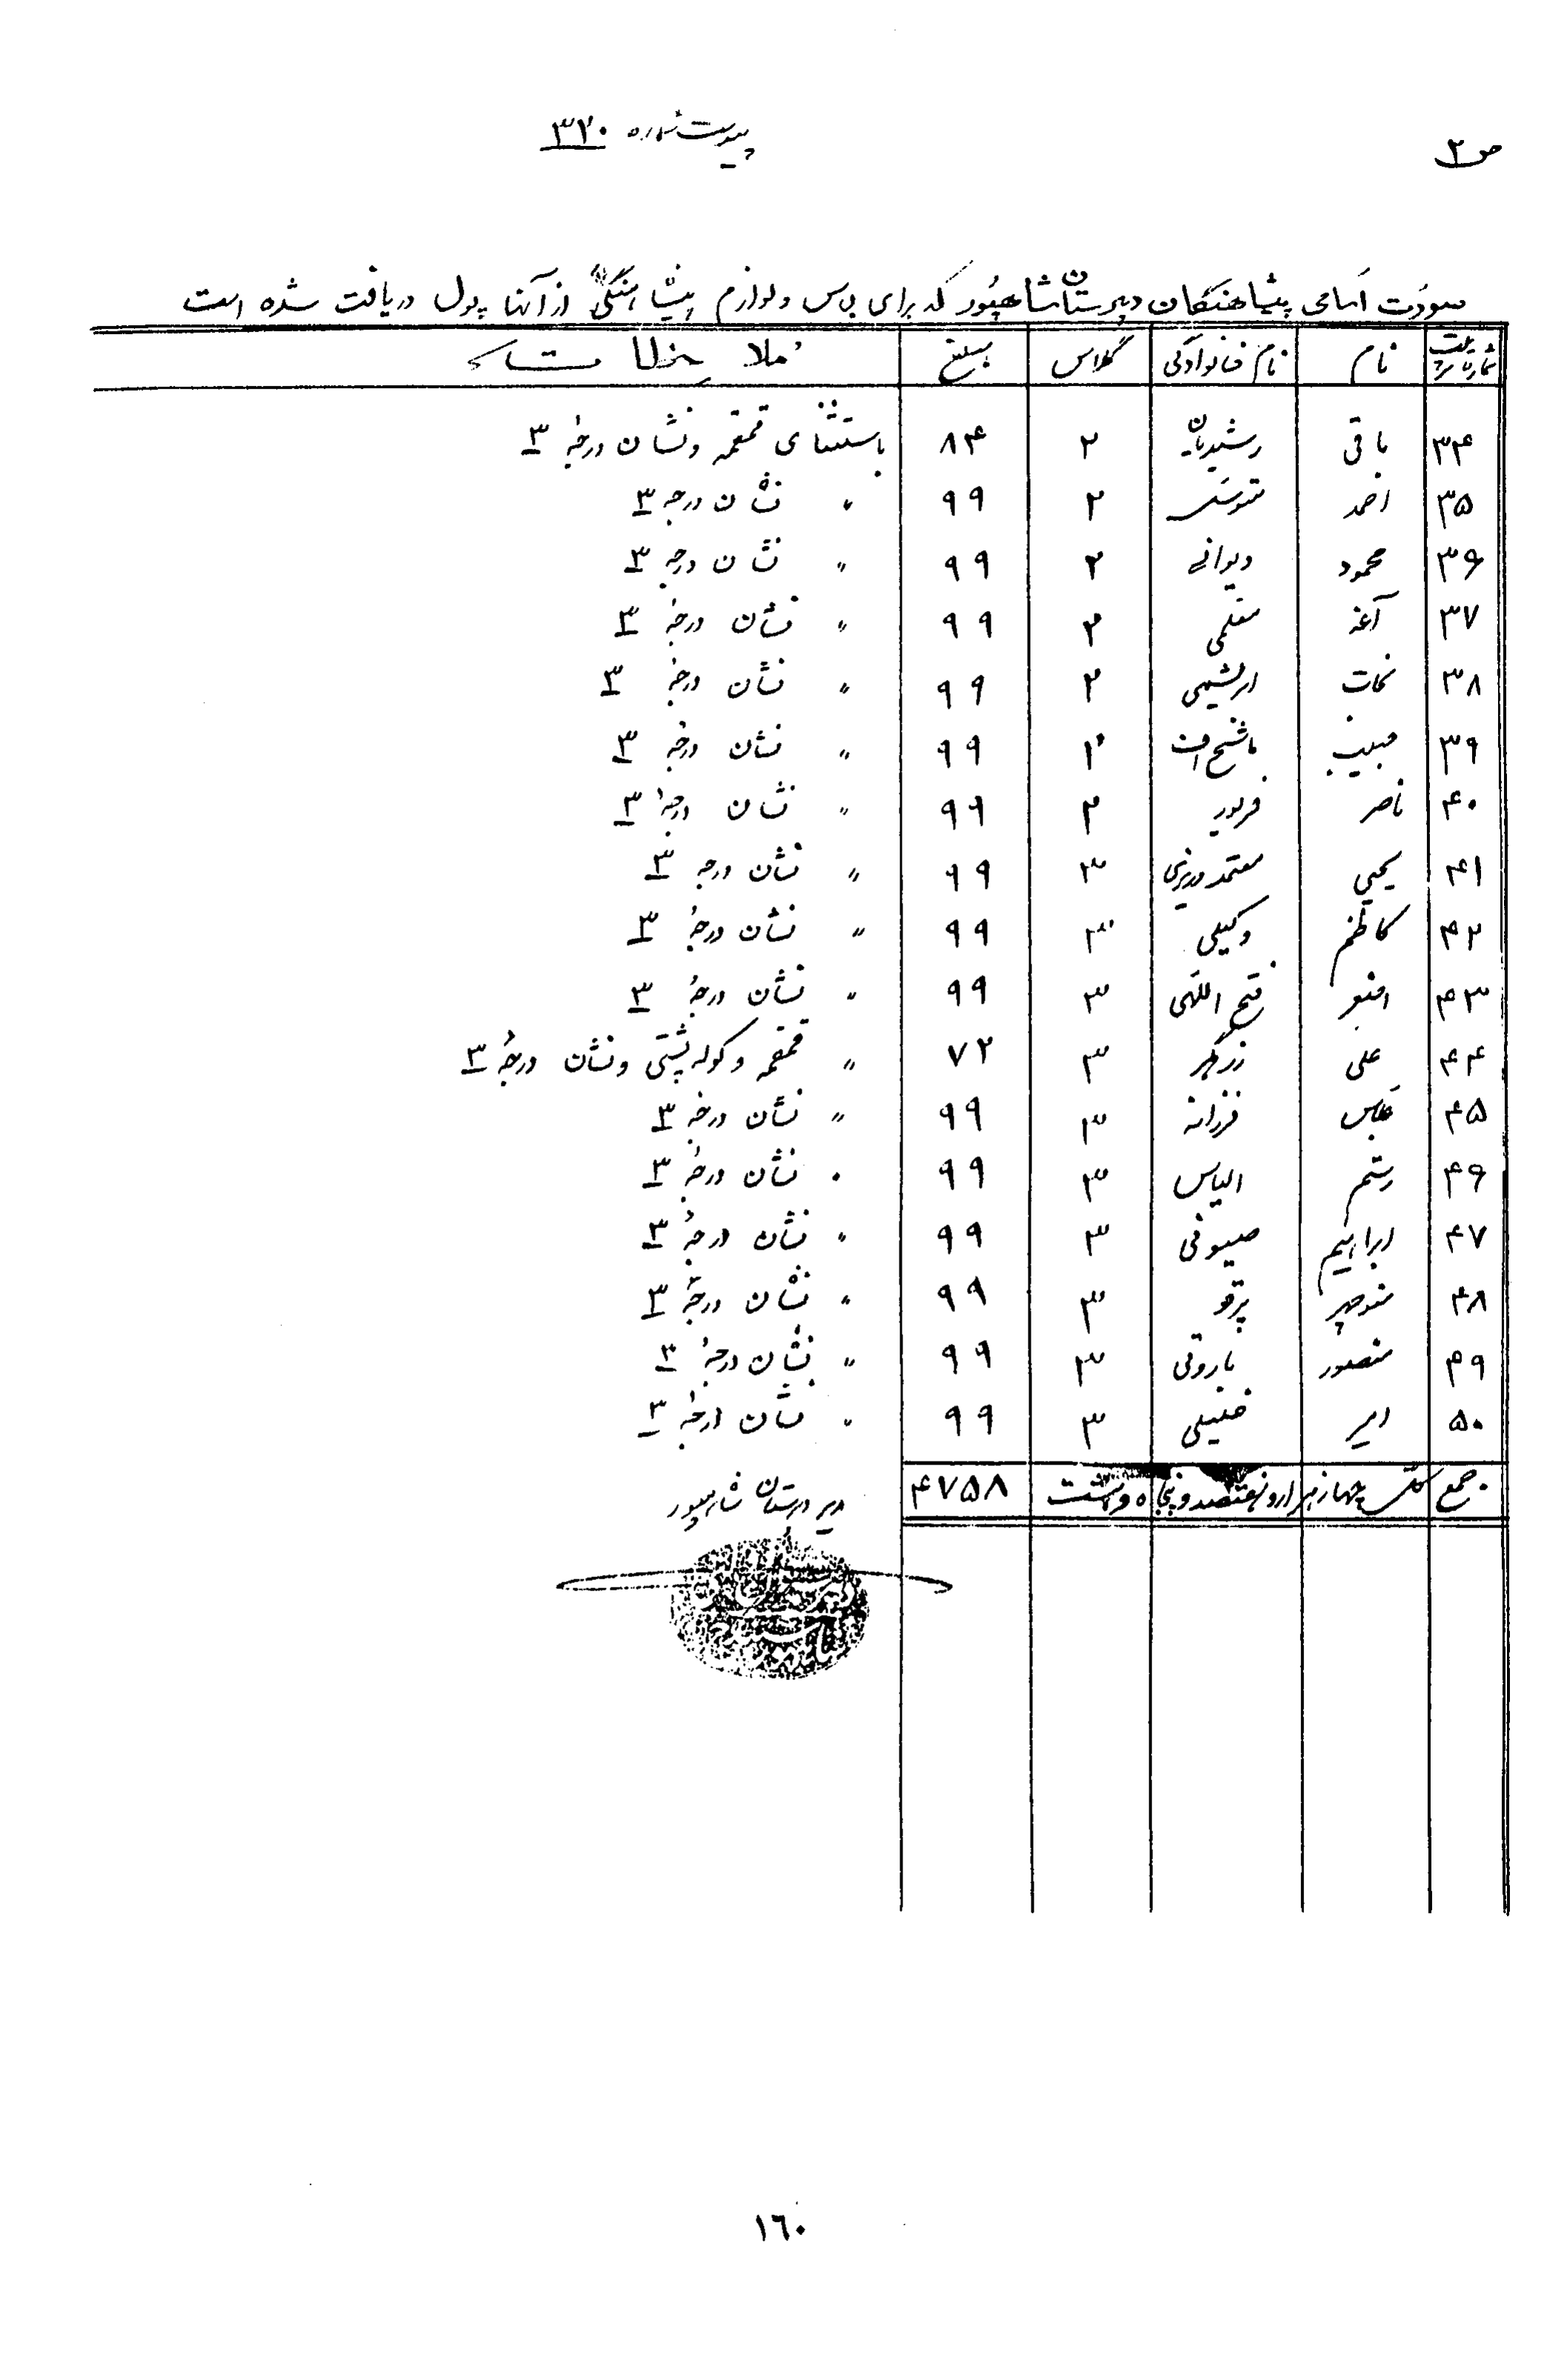 ص ۲
پیوست شماره ۳۲۰
صورت اسامی پیشاهنگان دبیرستان شاهپور که برای لباس و لوازم پیشاهنگی از آنها پول دریافت شده است
شماره ترتیب نام نام خانوادگی کلاس مبلغ ملاحظات
۳۴ باقی رشیدیان ۲ ۸۴ باستثنای قمقمه و نشان درجهٔ ۳
۳۵ احمد ۲ ۹۹ " نشان درجه ۳
۳۶ محمود دیوانی ۲ ۹۹ " نشان درجه ۳
۳۷ آغه معلمی ۲ ۹۹ " نشان درجهٔ ۳
۳۸ نجات ابریشمی ۲ ۹۹ " نشان درجهٔ ۳
۳۹ حبیب ۲ ۹۹ " نشان درجهٔ ۳
۴۰ ناصر فریور ۲ ۹۹ " نشان درجهٔ ۳
۴۱ یحیی معتمد وزیری ۳ ۹۹ " نشان درجه ۳
۴۲ کاظم وکیلی ۳ ۹۹ " نشان درجهٔ ۳
۴۳ فتح اللهی ۳ ۹۹ " نشان درجهٔ ۳
۴۴ علی زرگر ۳ ۷۲ " قمقمه و کوله پشتی و نشان درجهٔ ۳
۴۵ عباس فرزانه ۳ ۹۹ " نشان درجه ۳
۴۶ رستم الیاس ۳ ۹۹ " نشان درجهٔ ۳
۴۷ ابراهیم صیونی ۳ ۹۹ " نشان درجهٔ ۳
۴۸ منوچهر پرتو ۳ ۹۹ " نشان درجهٔ ۳
۴۹ منصور باروقی ۳ ۹۹ " نشان درجهٔ ۳
۵۰ امیر خلیلی ۳ ۹۹ " نشان درجهٔ ۳
جمع کل چهار هزار و هفتصد و پنجاه و هشت ۴۷۵۸
مدیر دبیرستان شاهپور
١٦٠